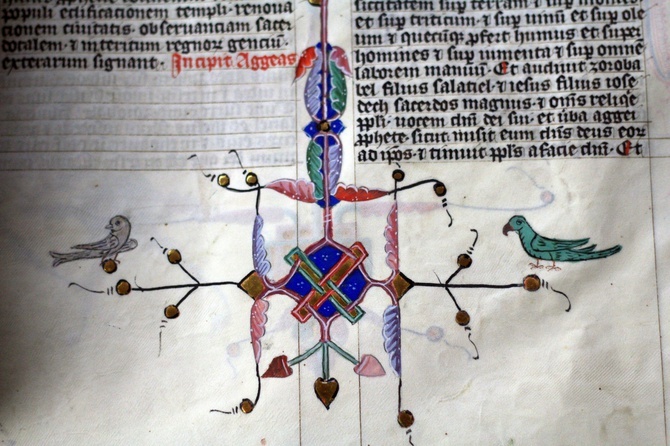 populi edificationem templi. renoua
tionem ciuitatis. obseruantiam sacer
dotalem. ⁊ interitum regnoꝝ gentiū.
exterarum signant. Incipit Aggeus
et sup triticum. ⁊ sup uinū et sup ole
um ⁊ quecūqꝫ ꝓfert humus et super
homines ⁊ sup iumenta ⁊ sup omne
laborem manuū. Et audiuit zoroba
bel filius salatiel ⁊ iesus filius iose
dech sacerdos magnus. ⁊ om̄s reliqe
ppli. uocem dn̄i dei sui. et uƀa aggei
ꝓphete. sicut misit eum dn̄s deus eor
ad ip̄os. ⁊ timuit ppls a facie dn̄i. Et